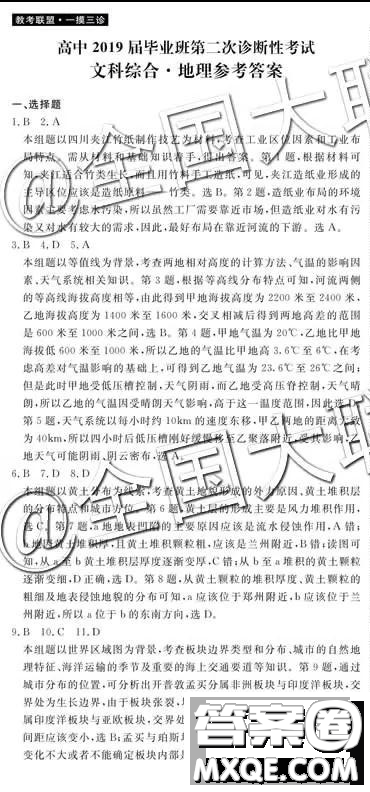 教考联盟·一摸三诊
高中2019届毕业班第二次诊断性考试
文科综合·地理参考答案
一、选择题
1.B 2.A
本组题以四川夹江竹纸制作技艺为材料,考查工业区位因素和工业布
局特点。需从材料和基础知识着手,得出答案。第1题,根据材料可
知,夹江适合竹类生长,而且用竹料手工造纸,可见,夹江造纸业形成的
主导区位应该是造纸原料——竹类。选B。第2题,造纸业布局的环境
因素主要考虑水污染,所以虽然工厂需要靠近市场,但造纸业对水有污
染又对水有较大的需求,因此,最好布局在靠近河流的下游。选A。
3.B 4.D 5.A
本组题以等值线为背景,考查两地相对高度的计算方法、气温的影响因
素、天气系统相关知识。第3题,根据等高线分布特点可知,河流两侧
的等高线海拔高度相等,由此得到甲地海拔高度为2200米至2400米,
乙地海拔高度为1400米至1600米,交叉相减后得到两地高差的范围
是600米至1000米之间,选B。第4题,甲地气温为20℃,乙地比甲地
海拔低600米至1000米,所以乙地的气温比甲地高3.6℃至6℃,在考
虑高差对气温影响的基础上,可得到乙地气温为23.6℃至26℃之间;
但是此时甲地受低压槽控制,天气阴雨,而乙地受高压脊控制,天气晴
朗,所以乙地的气温因受晴朗天气影响,高于这一温度范围,因此选D。
第5题,天气系统以每小时约10km的速度东移,甲乙两地的距离大致
为40km,所以四小时后低压槽刚好缓慢移至乙聚落附近,受其影响,乙
地天气可能阴雨,阴云密布,选A。
6.B 7.D 8.D
本组题以黄土分布为线索,考查黄土地貌形成的外力原因、黄土堆积层
的分布特点和城市方位。第6题,黄土层的形成主要是风力堆积作用,
选C。第7题,a地地表凹陷的主要原因应该是流水侵蚀作用,A错;
b地因黄土堆积厚,且黄土堆积颗粒粗,应该是兰州附近,B错;读图可
知,从a至b黄土堆积层厚度逐渐变厚,C错;从b至a堆积的黄土颗粒
逐渐变细,D正确,选D。第8题,从黄土颗粒的堆积厚度、黄土颗粒的
粗细及地表侵蚀地貌的分布可知,a应该位于郑州附近,b应该位于兰
州附近,所以a位于b的东南方向,选D。
9.B 10.C 11.D
本组题以世界区域图为背景,考查板块边界类型和分布、城市的自然地
理特征、海洋运输的季节及重要的海上交通要道等知识。第9题,通过
城市分布的位置,可分析出开普敦孟买分属非洲板块与印度洋板块,交
界处为生长边界,由于板块张裂,
属印度洋板块与亚欧板块,交界处
间距应该变小,选B;孟买与珀斯
变化不大或者不能确定板块内部
@全国大联
@全国大联
答案卷
MXQE.COM